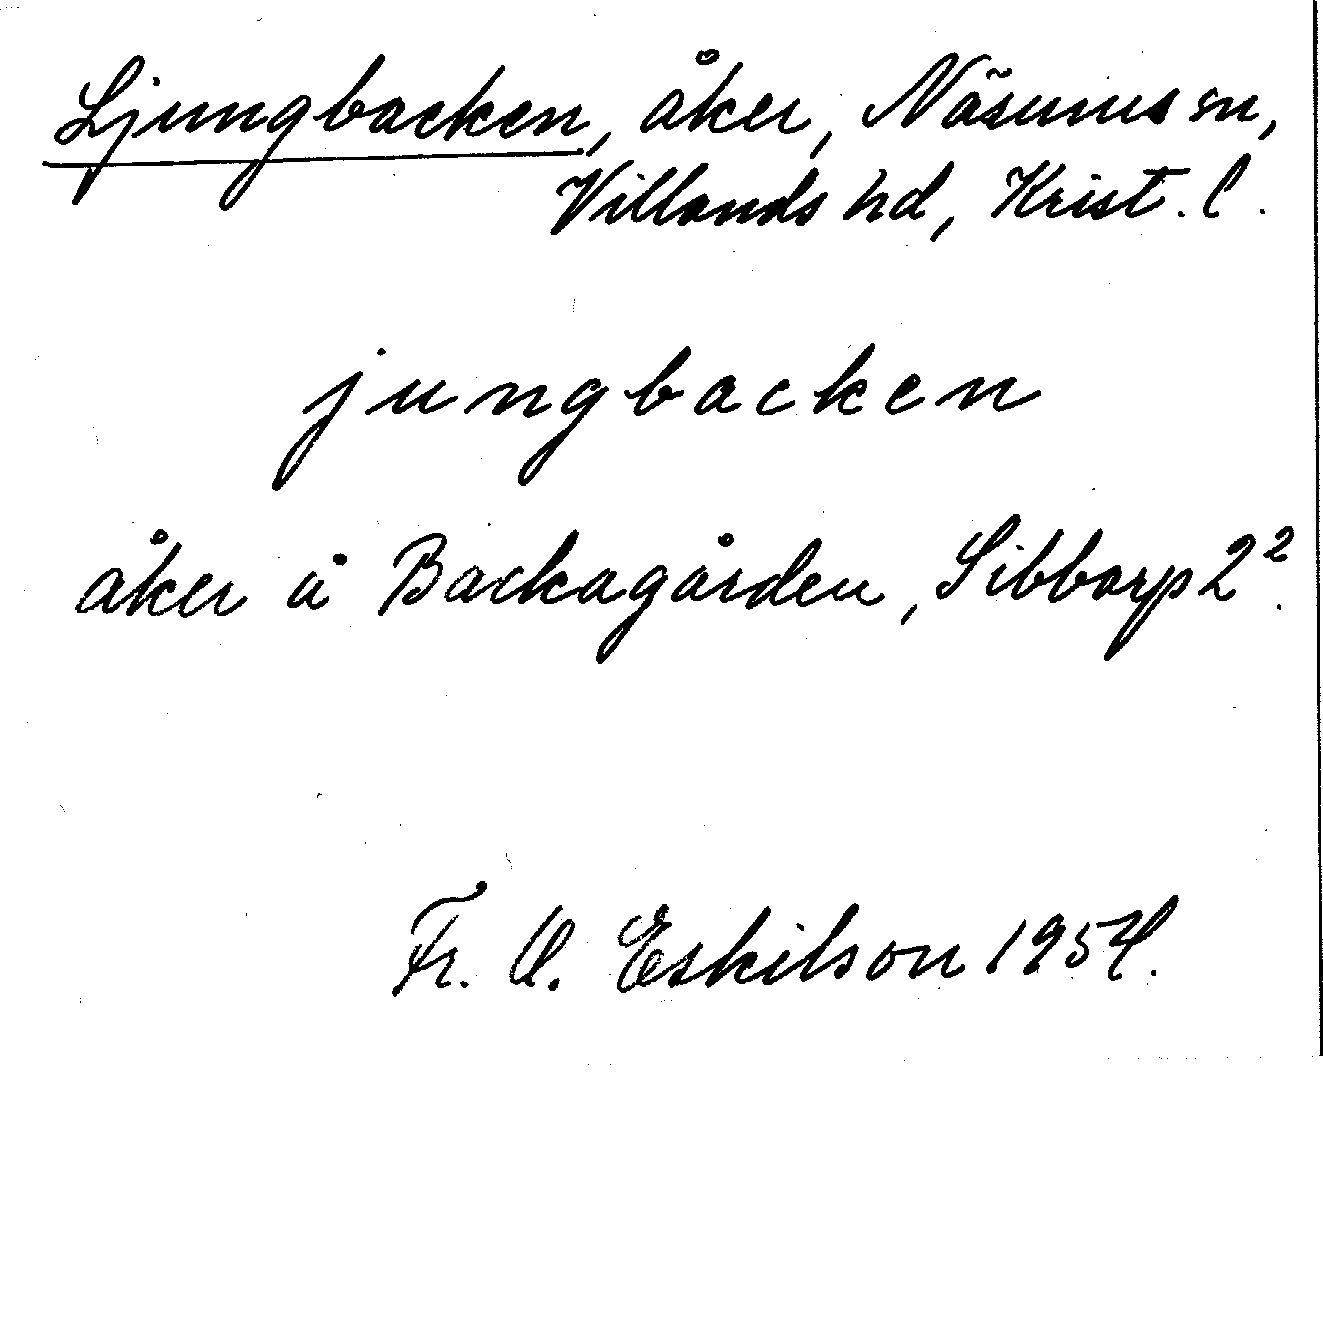 Ljungbacken, åker, Näsums sn,
Villands hd, Krist. l.
jungbacken
åker å Backagården, Sibbarp 2².
Fr. O. Eskilson 1954.